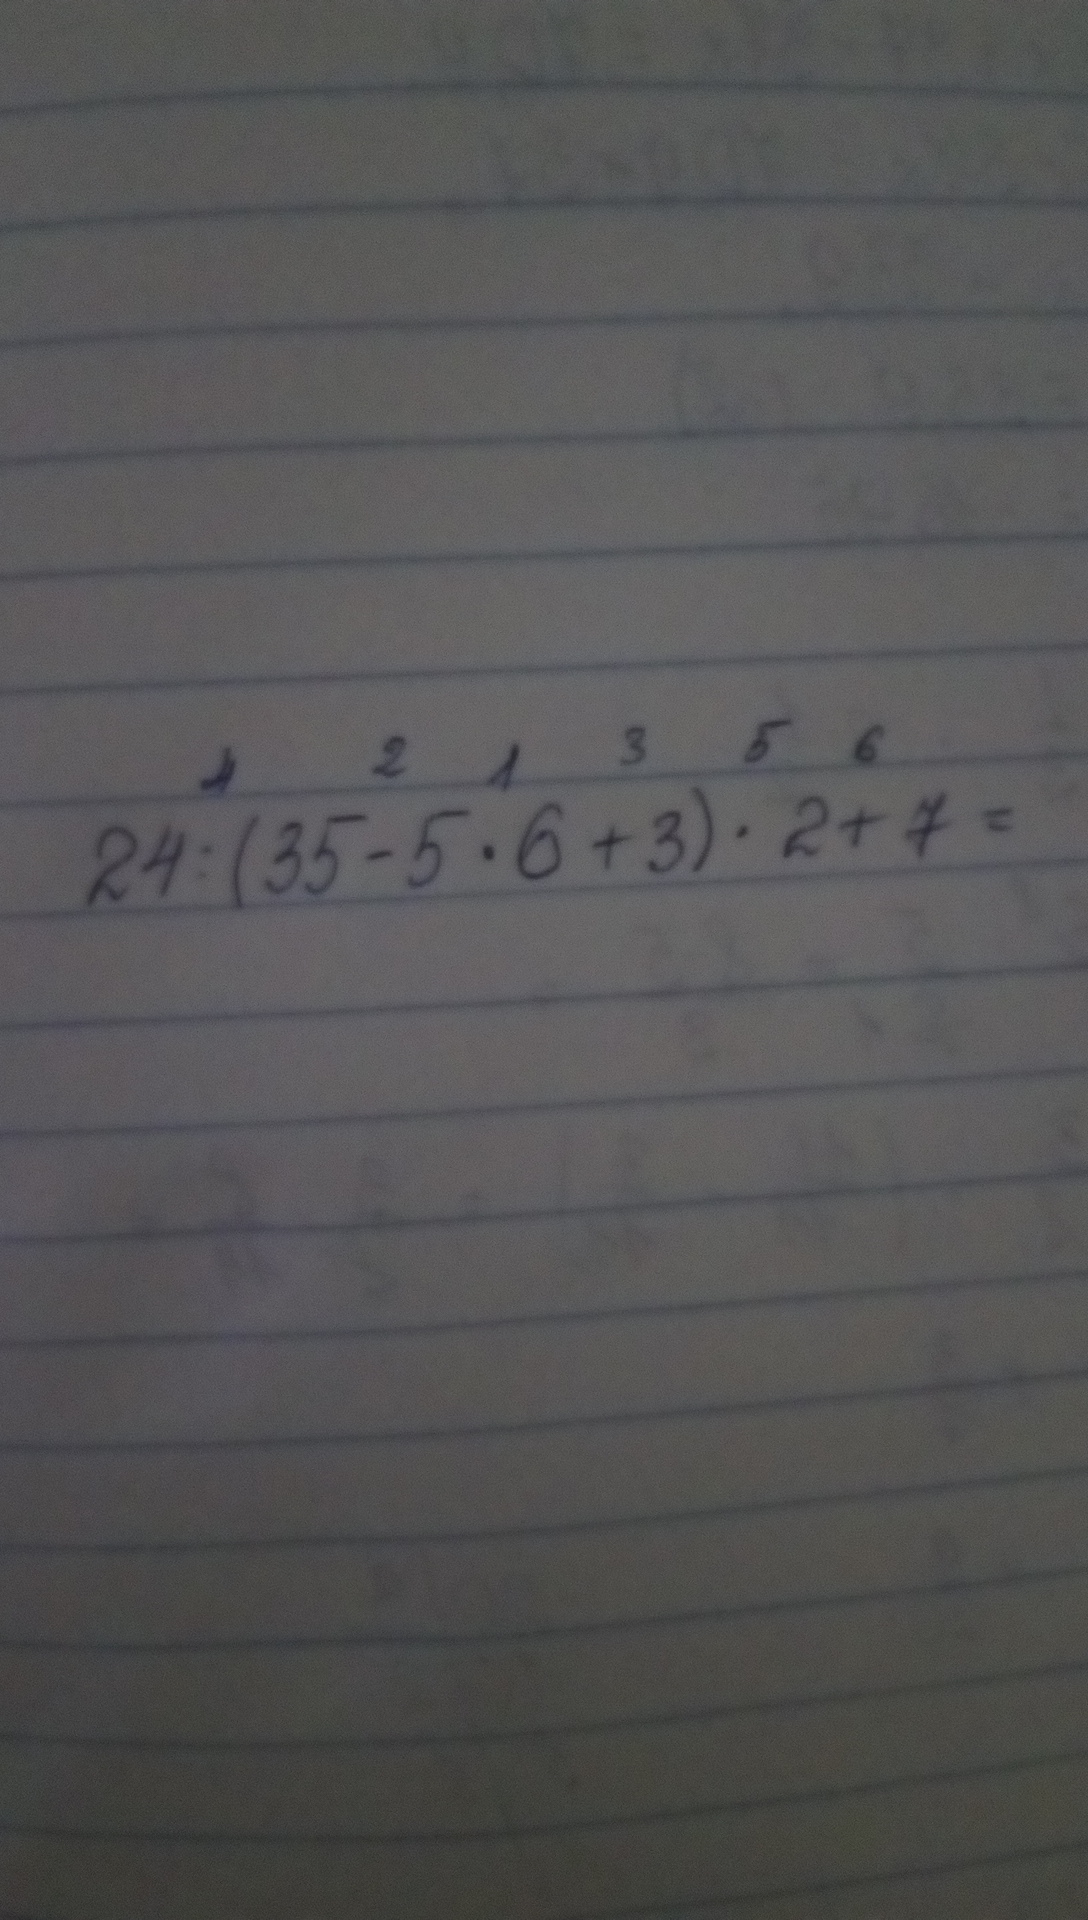 4 2 1 3 5 6
24:(35-5·6+3)·2+7=